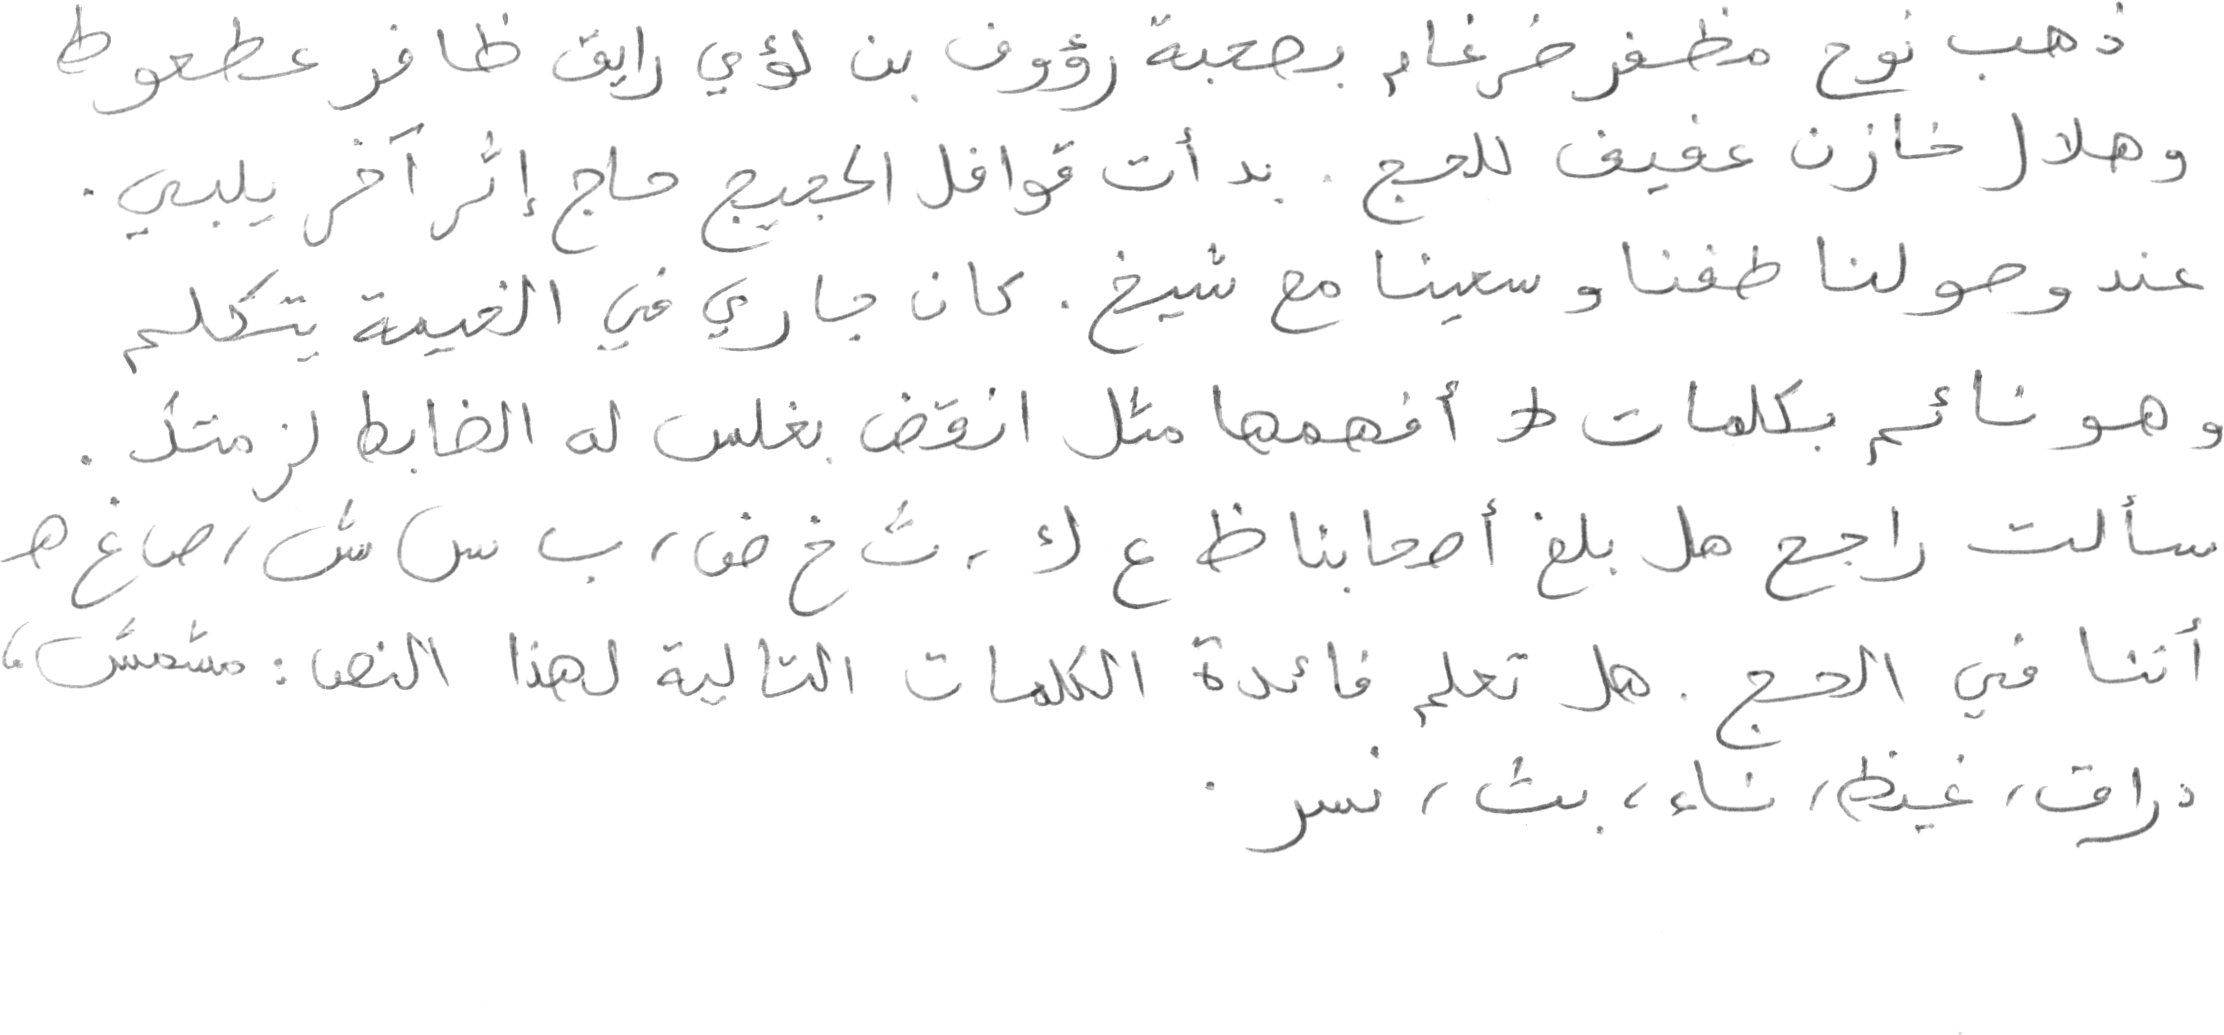 ذهب نوح مظفر ضرغام بصحبة رؤوف بن لؤي رايق ظافر عطعوط
وهلال خازن عفيف للحج . بدأت قوافل الحجيج حاج إثر آخر يلبي .
عند وصولنا طفنا وسعينا مع شيخ . كان جاري في الخيمة يتكلم
وهو نائم بكلمات لا أفهمها مثل انقض بغلس له الضابط لزمتئذ .
سألت راجح هل بلغ أصحابنا ظ ع ك ، ث خ ض ، ب س ش ، ص غ ه
أننا في الحج . هل تعلم فائدة الكلمات التالية لهذا النص : مشمش ،
دراق ، غيظ ، ناء ، بث ، نسر .